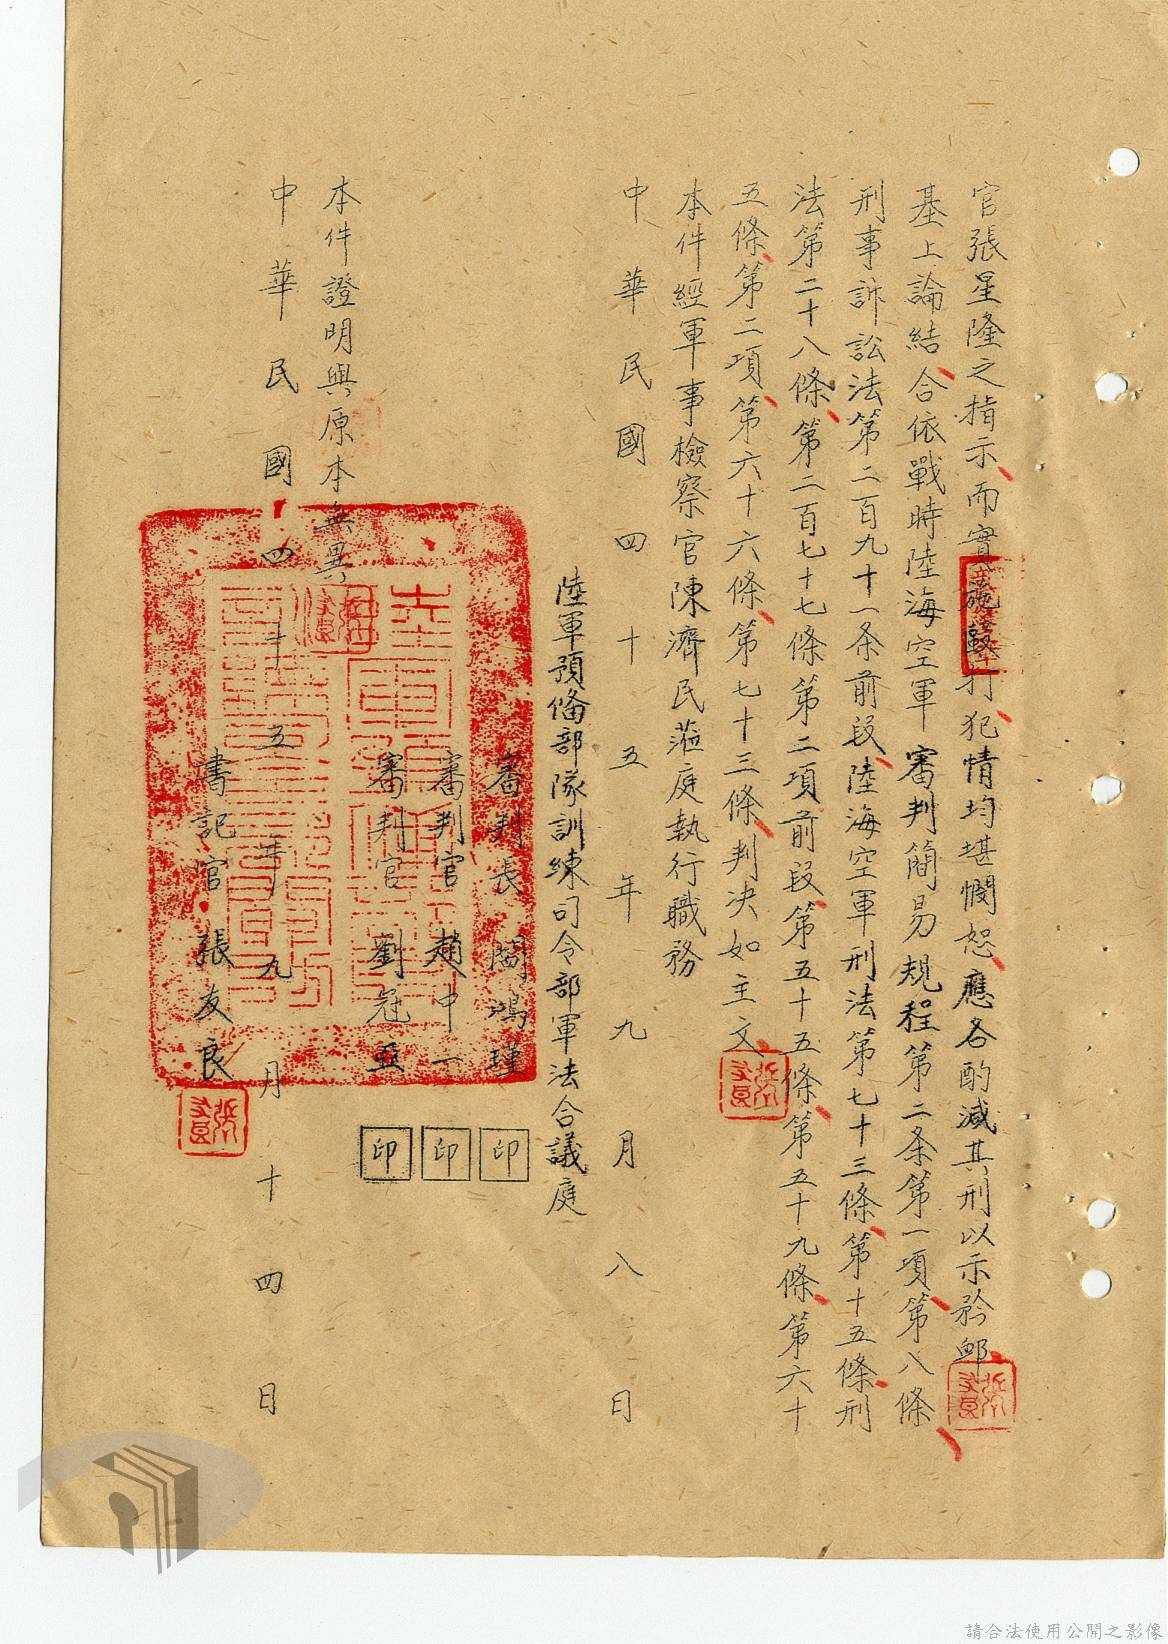 官張星隆之指示而實施毆打犯情均堪憫恕應各酌減其刑以示矜卹
基上論結合依戰時陸海空軍審判簡易規程第二条第一項第八條
刑事訴訟法第二百九十一条前段陸海空軍刑法第七十三條第十五條刑
法第二十八條第二百七十七條第二項前段第五十五條第五十九條第六十
五條第二項第六十六條第七十三條判決如主文
本件經軍事檢察官陳濟民蒞庭執行職務
中華民國四十五年九月八日
陸軍預備部隊訓練司令部軍法合議庭
審判長 閻鴻瑾 印
審判官 趙中一 印
審判官 劉冠亞 印
本件證明與原本無異
中華民國四十五年九月十四日
書記官 張友良
請合法使用公開之影像